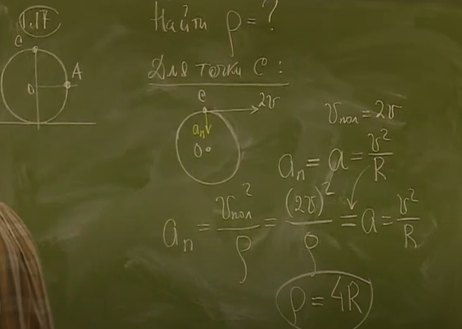 1.17
Найти ρ = ?
Для точки C :
C
A
O
C
2v
aₙ
O
vпол = 2v
aₙ = a = v²/R
aₙ = vпол²/ρ = (2v)²/ρ = a = v²/R
ρ = 4R